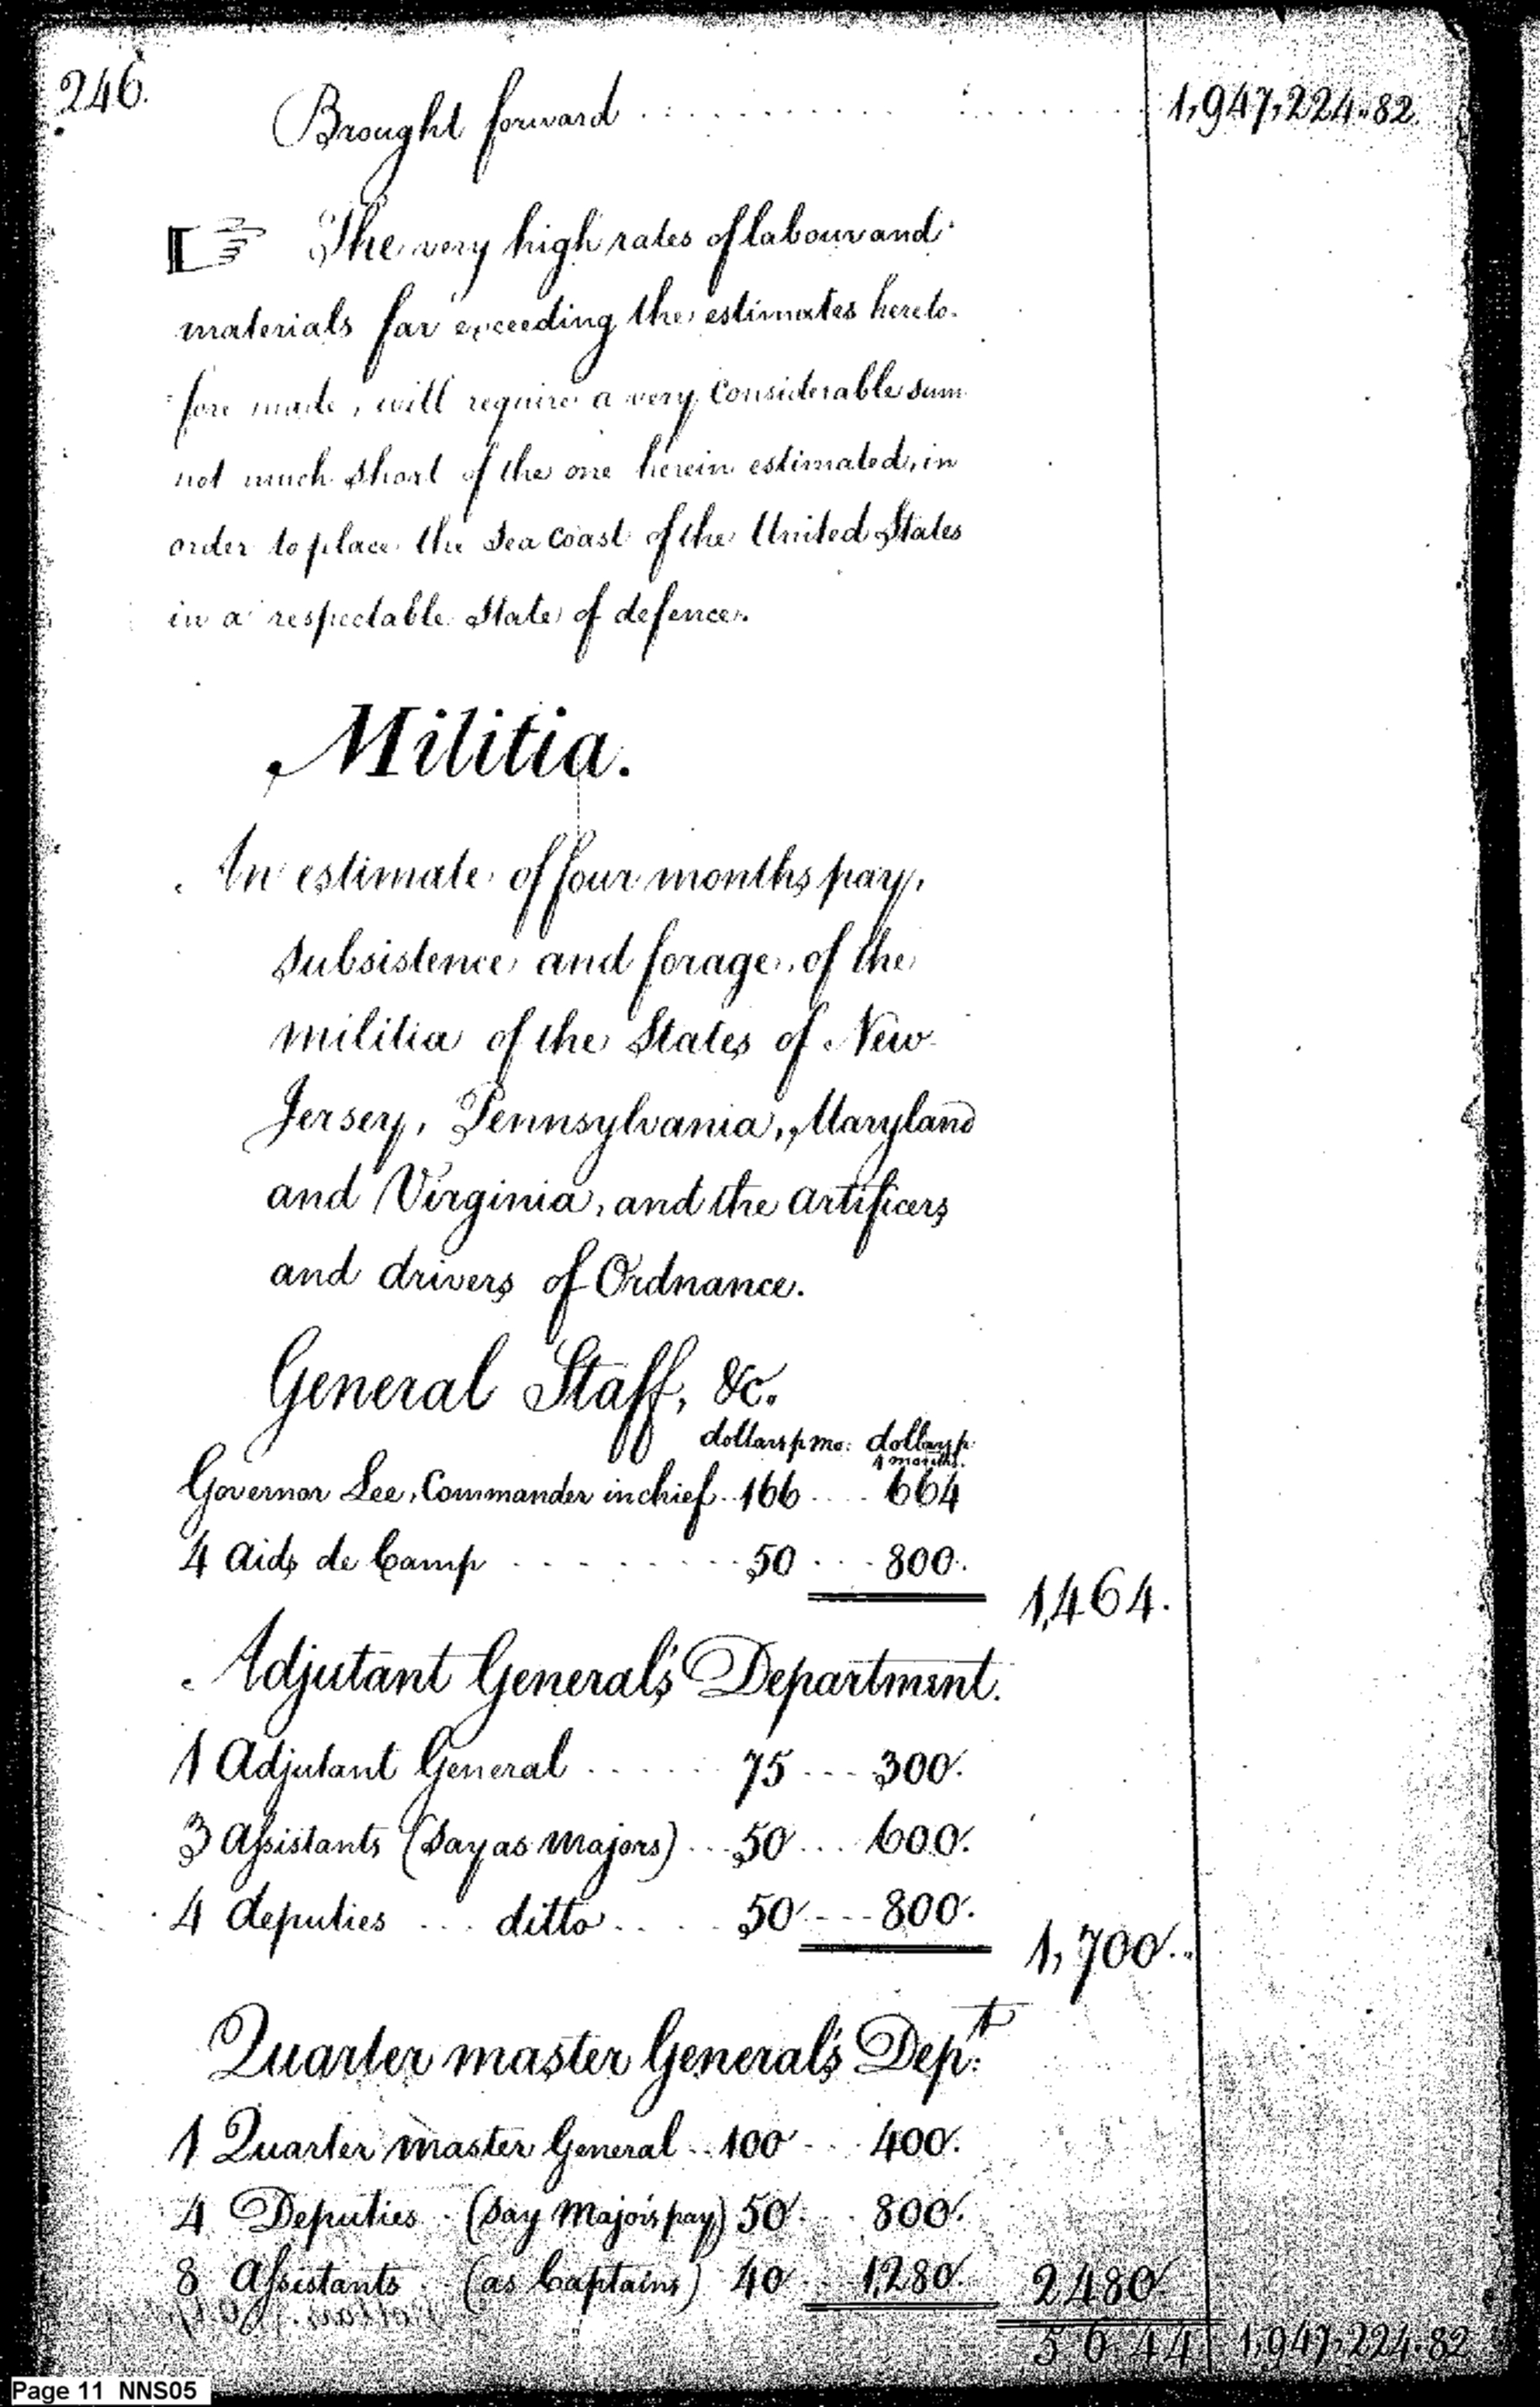 246.
Brought forward . . . . . . . . . . . . . . . . 1,947,224.82.
☞ The very high rates of labour and
materials far exceeding the estimates hereto-
fore made, will require a very considerable sum
not much short of the one herein estimated, in
order to place the Sea Coast of the United States
in a respectable State of defence.
Militia.
An estimate of four months pay,
subsistence and forage, of the
militia of the States of New
Jersey, Pennsylvania, Maryland
and Virginia, and the artificers
and drivers of Ordnance.
General Staff, &c.
dollars p mo: dollars p
4 months.
Governor Lee, Commander in chief . . 166 . . . . 664
4 aids de Camp . . . . . . . . . 50 . . . 800.
1,464.
Adjutant General's Department.
1 Adjutant General . . . . . . 75 . . . . 300.
3 Assistants (say as Majors) . . . 50 . . . 600.
4 deputies . . . ditto . . . . 50 . . . 800.
1,700.
Quarter master General's Dept.
1 Quarter master General . . 100 . . . 400.
4 Deputies . (say Majors pay) 50 . . . 800.
8 Assistants . . (as Captains) 40 . . . 1,280. 2480
5644 1,947,224.82
Page 11 NNS05